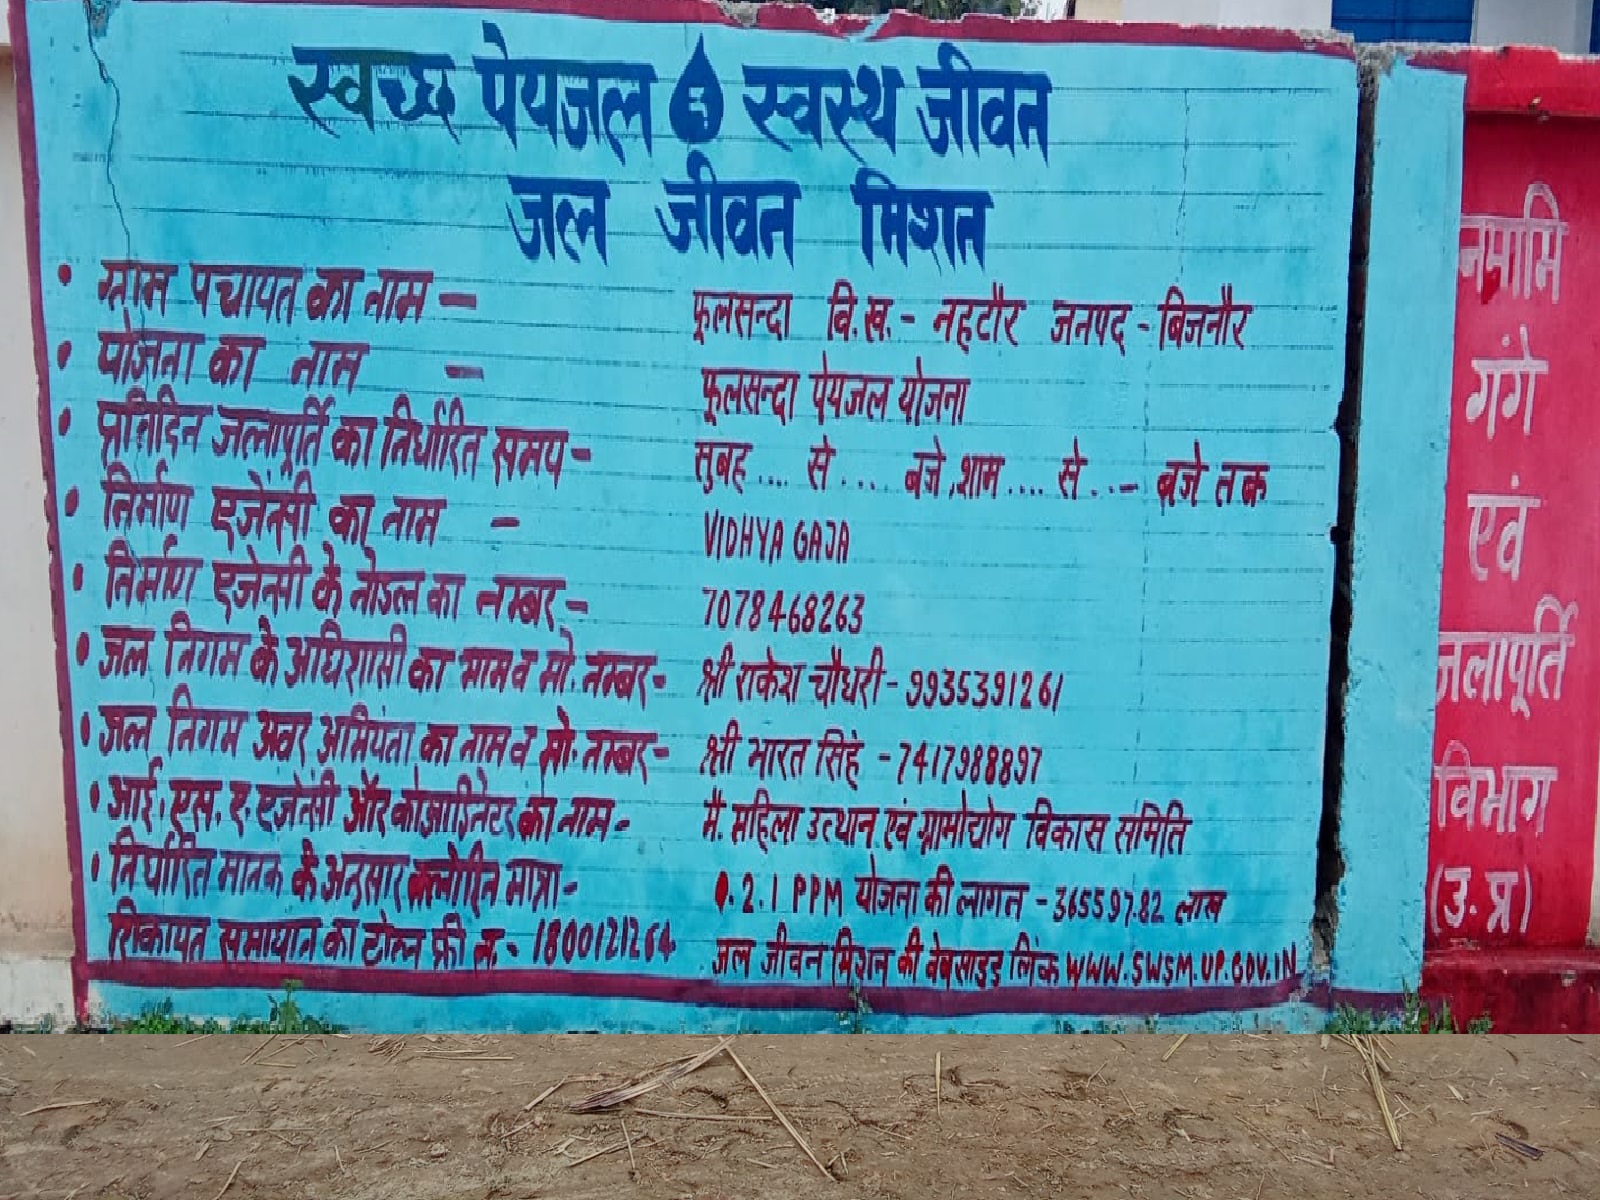 स्वच्छ पेयजल स्वस्थ जीवन
जल जीवन मिशन
• ग्राम पचायत का नाम — फूलसन्दा वि.ख.- नहटौर जनपद - बिजनौर
• योजना का नाम — फूलसन्दा पेयजल योजना
• प्रतिदिन जलापूर्ति का निर्धारित समय - सुबह .... से .... बजे ,शाम .... से ..- बजे तक
• निर्माण एजेंसी का नाम - VIDHYA GAJA
• निर्माण एजेन्सी के नोडल का नम्बर - 7078468263
• जल निगम के अधिशासी का नाम व मो. नम्बर - श्री राकेश चौधरी - 9935391261
• जल निगम अवर अभियंता का नाम व मो. नम्बर - श्री भारत सिंह - 7417988897
• आई.एस.ए. एजेन्सी और कोआर्डिनेटर का नाम - मै. महिला उत्थान एवं ग्रामोद्योग विकास समिति
• निर्धारित मानक के अनुसार क्लोरीन मात्रा - 0.2.1 PPM योजना की लागत - 365597.82 लाख
शिकायत समाधान का टोल फ्री न. - 1800121264 जल जीवन मिशन की वेबसाइड लिंक WWW.SWSM.UP.GOV.IN
नमामि
गंगे
एवं
जलापूर्ति
विभाग
(उ.प्र)